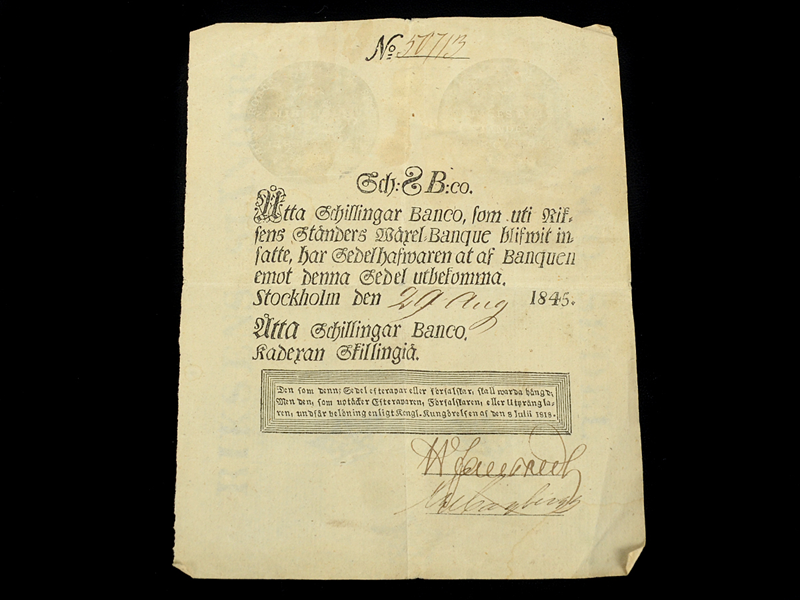 No 50713
Sch: 8 B:co.
Åtta Schillingar Banco, som uti Rik-
sens Ständers Wäxel-Banque blifwit in-
satte, har Sedelhafwaren at af Banquen
emot denna Sedel utbekomma.
Stockholm den 29 Aug 1845.
Åtta Schillingar Banco.
Kadexan Skillingiä.
Den som denna Sedel efterapar eller förfalskar, skall warda hängd;
Men den, som uptäcker Efteraparen, Förfalskaren, eller Utprångla-
ren, undfår belöning enligt Kongl. Kungörelsen af den 8 Julii 1818.